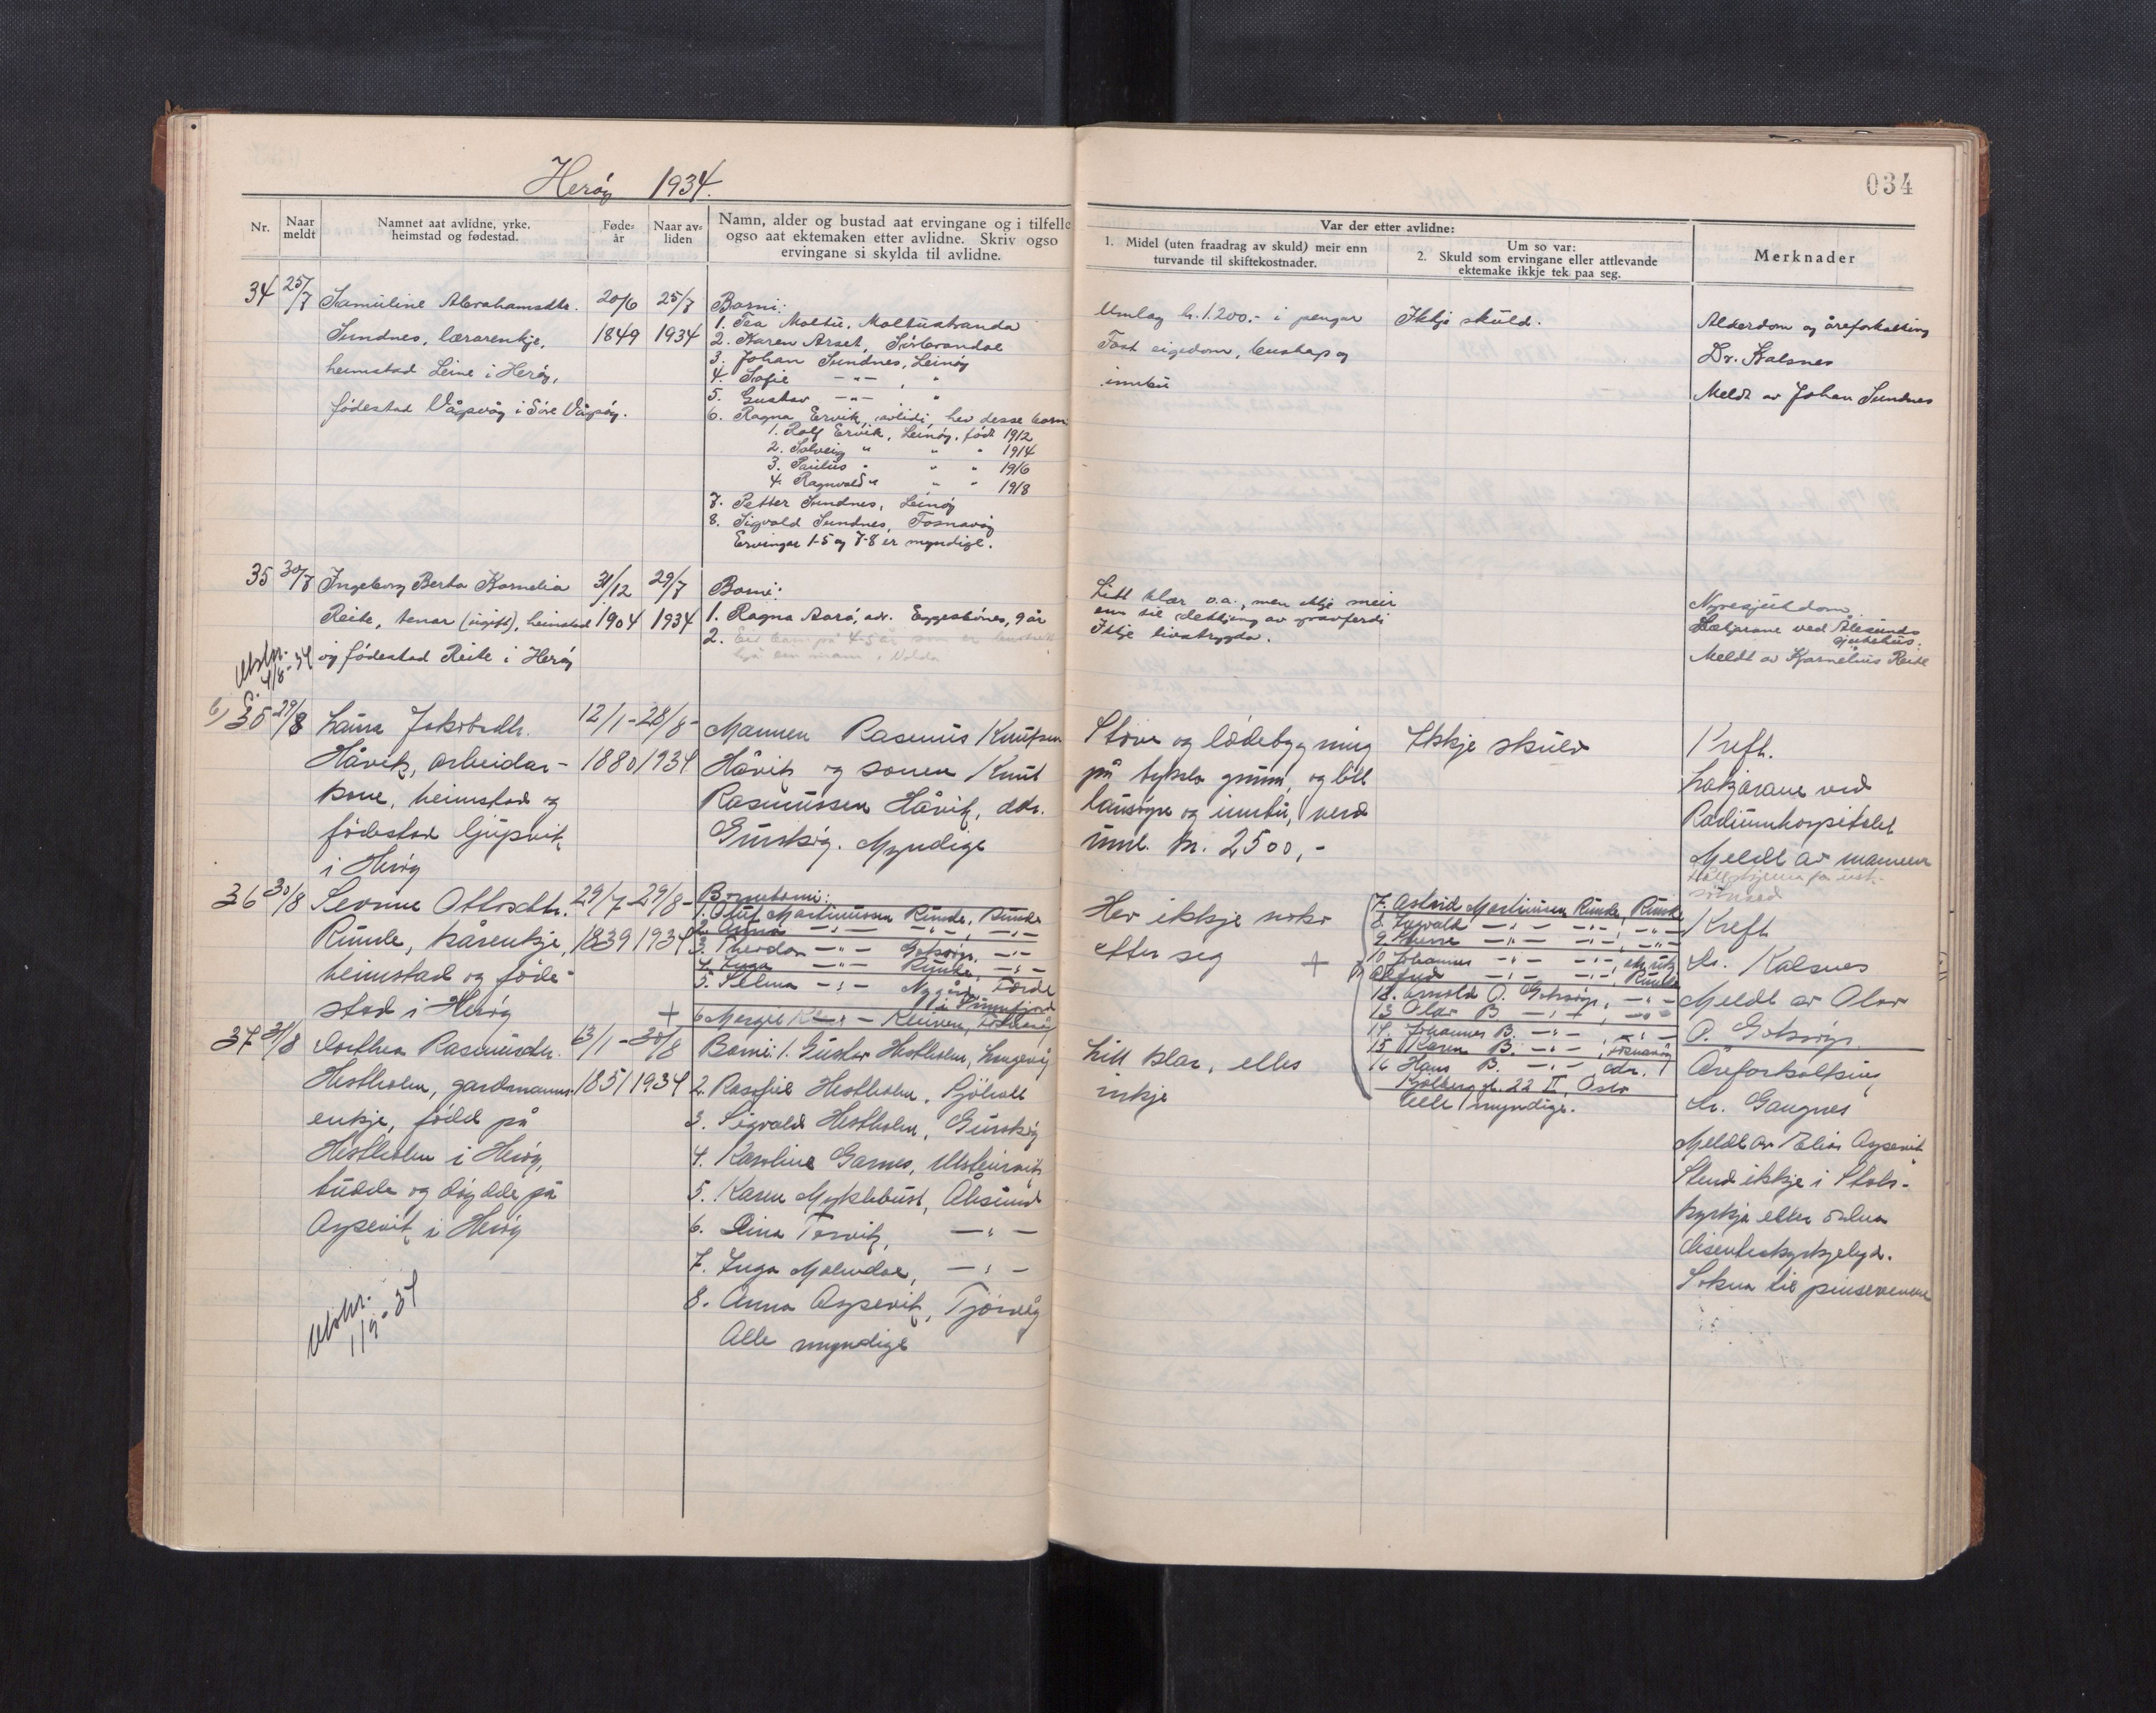 Herøy 1934.
034
Nr.
Naar meldt
Namnet aat avlidne, yrke. heimstad og fødestad.
Føde-år
Naar av-liden
Namn, alder og bustad aat ervingane og i tilfelle
ogso aat ektemaken etter avlidne. Skriv ogso
ervingane si skylda til avlidne.
Var der etter avlidne:
1. Midel (uten fraadrag av skuld) meir enn
turvande til skiftekostnader.
Um so var:
2. Skuld som ervingane eller attlevande
ektemake ikkje tek paa seg.
Merknader
34 25/7 Samuline Abrahamsdtr.
Sundnes, lærarenkje,
heimstad Leine i Herøy,
fødestad Vågsvåg i Søre Vågsøy.
20/6
1849
25/7
1934
Borni:
1. Tea Moltu, Moltustranda
2. Karen Arset, Sørbrandal
3. Johan Sundnes, Leinøy
4. Sofie -"- , "
5. Gustav -"- "
6. Ragna Ervik, avlidi, hev desse born
1. Rolf Ervik, Leinøy, født 1912
2. Solveig " " " 1914
3. Paulus " " " 1916
4. Ragnvald " " " 1918
7. Petter Sundnes, Leinøy
8. Sigvald Sundnes, Fosnavåg
Ervingar 1-5 og 7-8 er myndige.
Umlag kr. 1.200.- i pengar
Fast eigedom, buskap og
innbu
Ikkje skuld.
Alderdom og åreforkalking
Dr. Kalsnes
Meldt av Johan Sundnes
35 30/7 Ingeborg Berta Kornelia
Reite, tenar (ugift), heimstad
og fødestad Reite i Herøy
31/12
1904
29/7
1934
Borni:
1. Ragna Aarø, adr. Eggesbønes, 9 år
2. Eit barn på 4-5 år som er
hjå ein mann i Volda
Litt klær o.a., men ikkje meir
enn til dekkjing av gravferdi
Ikkje livstrygda.
Nyresjukdom
Lækjarane ved Ålesunds
sjukehus.
Meldt av Kornelius Reite
Utskr.
4/8-34
6) 35 29/8 Laura Jakobsdtr.
Håvik, arbeidar-
kone, heimstad og
fødestad Gjupvik
i Herøy
12/1-
1880
28/8-
1934
Mannen Rasmus Knutsen
Håvik og sonen Knut
Rasmussen Håvik, adr.
Gurskøy. Myndige
Stove og lødebygning
på byksla grunn, og litt
lausøyre og innbu, verd
uml. kr. 2500,-
Ikkje skuld
Kreft.
Lækjarane ved
Radiumhospitalet
Meldt av mannen
36 30/8 Sevrine Ottosdtr.
Runde, kårenkje,
heimstad og føde-
stad i Herøy
29/7-
1839
29/8-
1934
Bornaborni:
1. Oluf Martinussen Runde, Runde
2. Anna -"- -"-, -"-
3. Theodor -"- Goksøyr, -"-
4. Inga -"- Runde, -"-
5. Selma -"- Nygård, Førde
i Sunnfjord
+ 6 Margit -"- Kleiven,
Hev ikkje noko
etter seg
+
7. Astrid Martinussen Runde, Runde
8. Ingvald -"- -"-, -"-
9. -"- -"-, -"-
10. Johannes -"- -"-,
-"- -"-, Runde
12. Arnold O. Goksøyr, -"-
13 Olav B. -"-, -"-
14. Johannes B. -"-, -"-
15 Karen B. -"-, Fosnavåg
16 Hans B. -"- adr.
Kjølberg gt. 22 II, Oslo
Alle myndige.
Kreft
Dr. Kalsnes
Meldt av Olav
O. Goksøyr.
37 31/8 Dorthea Rasmusdtr.
Hestholm, gardmanns-
enkje, fødd på
Hestholm i Herøy,
budde og døydde på
Aspevik i Herøy
13/1-
1851
30/8
1934
Borni: 1. Gustav Hestholm, Langevåg
2. Rasofie Hestholm, Sjøholt
3. Sigvald Hestholm, Gurskøy
4. Karoline Garnes, Ulsteinvik
5. Karen Myklebust, Ålesund
6. Lina Torvik, -"-
7. Inga Molvdal, -"-
8. Anna Aspevik, Tjørvåg
Alle myndige
Litt klær, elles
inkje
Åreforkalking
Dr. Gangnes
Meldt av Elias Aspevik
Stend ikkje i Stats-
kyrkja eller onnor
disentarkyrkjelyd.
Sokna til pinsevenene
Utskr.
1/9-34